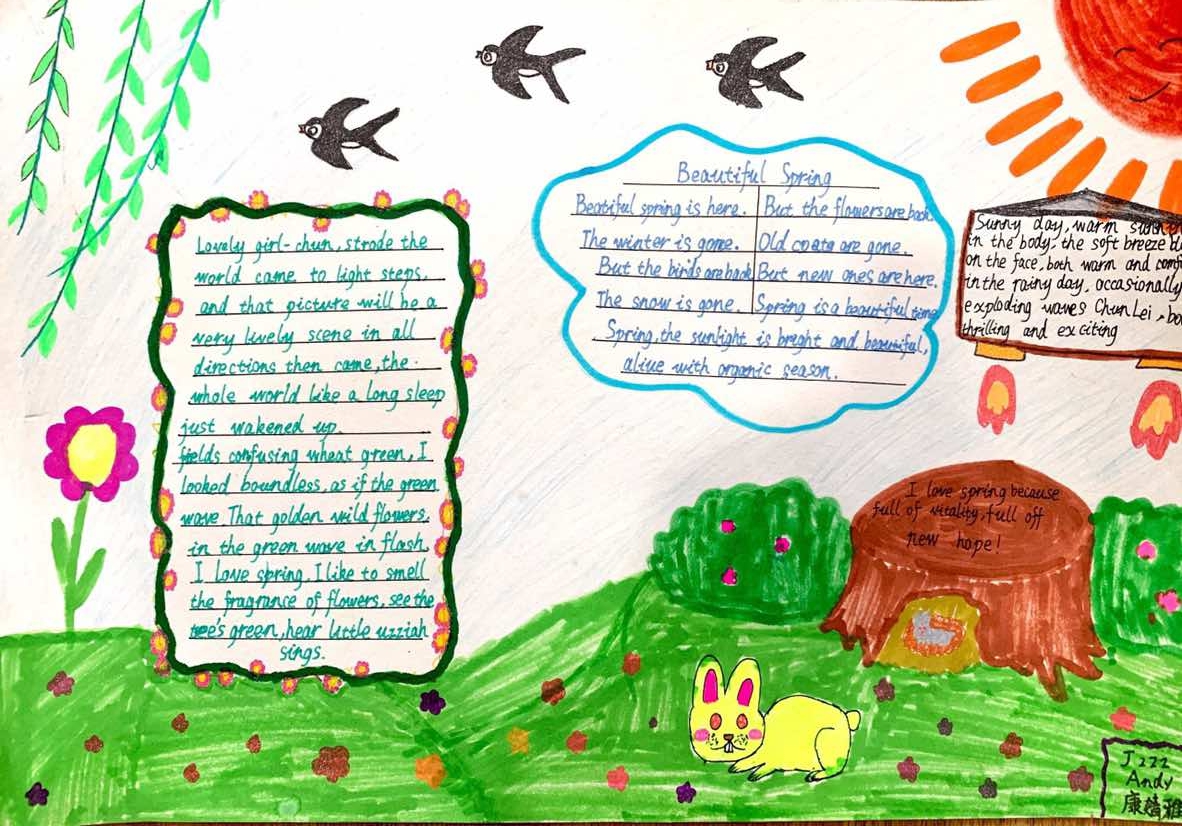 Lovely girl-chun, strode the
world came to light steps.
and that picture will be a
very lively scene in all
directions then came, the
whole world like a long sleep
just wakened up.
fields confusing wheat green, I
looked boundless, as if the green
wave. That golden wild flowers.
in the green wave in flash.
I love spring, I like to smell
the fragrance of flowers, see the
tree's green, hear little uzziah
sings.
Beautiful Spring
Beatiful spring is here. But the flowers are back
The winter is gone. Old coats are gone.
But the birds are back But new ones are here.
The snow is gone. Spring is a beautiful time
Spring, the sunlight is bright and beautiful,
alive with organic season.
Sunny day, warm
in the body, the soft breeze
on the face, both warm and
in the rainy day, occasionally
exploding waves Chun Lei,
thrilling and exciting
I love spring because
full of vitality, full off
new hope!
J222
Andy
康 雅